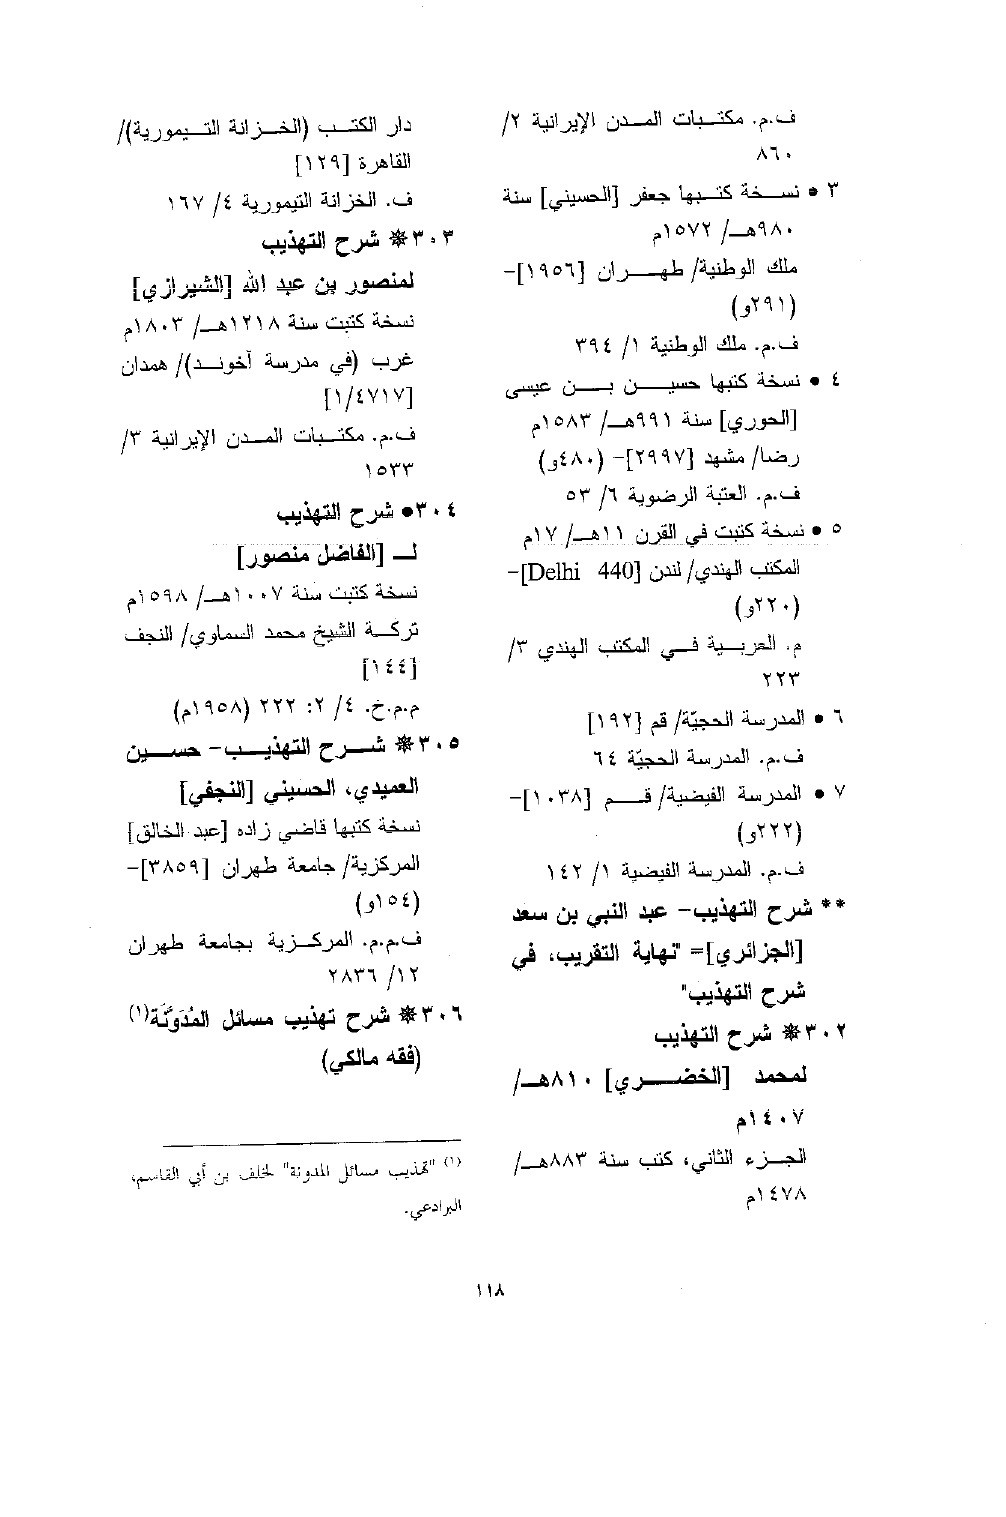 ف.م. مكتبات المدن الإيرانية ٢/
٨٦٠
٣ • نسخة كتبها جعفر [الحسيني] سنة
٩٨٠هـ/ ١٥٧٢م
ملك الوطنية/ طهران [١٩٥٦]-
(٢٩١و)
ف.م. ملك الوطنية ١/ ٣٩٤
٤ • نسخة كتبها حسين بن عيسى
[الحوري] سنة ٩٩١هـ/ ١٥٨٣م
رضا/ مشهد [٢٩٩٧]- (٤٨٠و)
ف.م. العتبة الرضوية ٦/ ٥٣
٥ • نسخة كتبت في القرن ١١هـ/ ١٧م
المكتب الهندي/ لندن [Delhi 440]-
(٢٢٠و)
م. العربية في المكتب الهندي ٣/
٢٢٣
٦ • المدرسة الحجيّة/ قم [١٩٢]
ف.م. المدرسة الحجيّة ٦٤
٧ • المدرسة الفيضية/ قم [١٠٣٨]-
(٢٢٢و)
ف.م. المدرسة الفيضية ١/ ١٤٢
** شرح التهذيب- عبد النبي بن سعد
[الجزائري]= "نهاية التقريب، في
شرح التهذيب"
٣٠٢* شرح التهذيب
لمحمد [الخضري] ٨١٠هـ/
١٤٠٧م
الجزء الثاني، كتب سنة ٨٨٣هـ/
١٤٧٨م
دار الكتب (الخزانة التيمورية)/
القاهرة [١٢٩]
ف. الخزانة التيمورية ٤/ ١٦٧
٣٠٣* شرح التهذيب
لمنصور بن عبد الله [الشيرازي]
نسخة كتبت سنة ١٢١٨هـ/ ١٨٠٣م
غرب (في مدرسة آخوند)/ همدان
[١/٤٧١٧]
ف.م. مكتبات المدن الإيرانية ٣/
١٥٣٣
٣٠٤• شرح التهذيب
لـ [الفاضل منصور]
نسخة كتبت سنة ١٠٠٧هـ/ ١٥٩٨م
تركة الشيخ محمد السماوي/ النجف
[١٤٤]
م.م.خ. ٤/ ٢: ٢٢٢ (١٩٥٨م)
٣٠٥* شرح التهذيب- حسين
العميدي، الحسيني [النجفي]
نسخة كتبها قاضي زاده [عبد الخالق]
المركزية/ جامعة طهران [٣٨٥٩]-
(١٥٤و)
ف.م.م. المركزية بجامعة طهران
١٢/ ٢٨٣٦
٣٠٦* شرح تهذيب مسائل المُدَوَّنَة(١)
(فقه مالكي)
(١) "تهذيب مسائل المدونة" لخلف بن أبي القاسم،
البرادعي.
١١٨